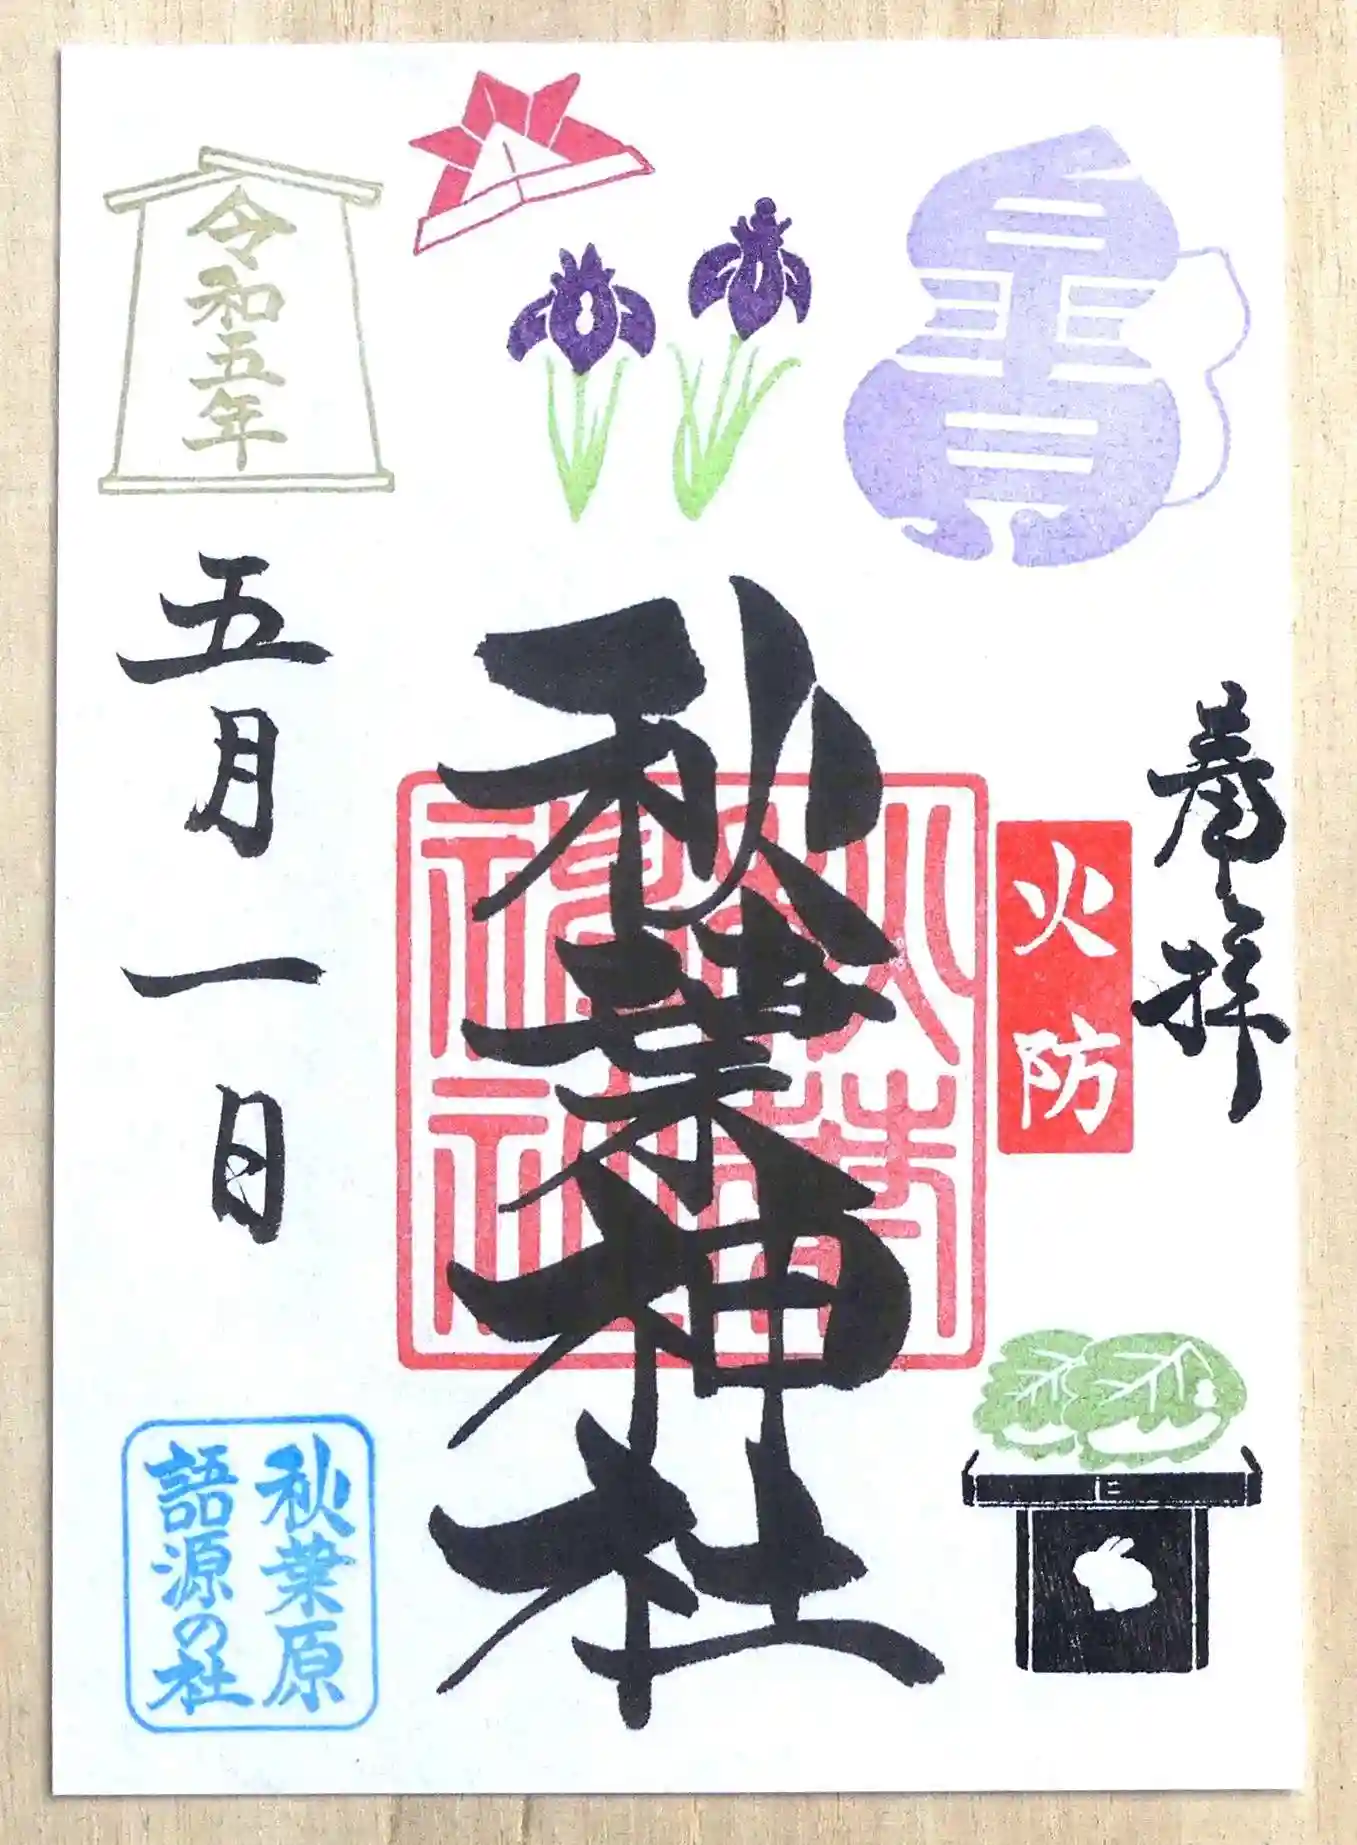 奉拝
火防
秋葉神社
秋葉神社
令和五年
五月一日
秋葉原
語源の社